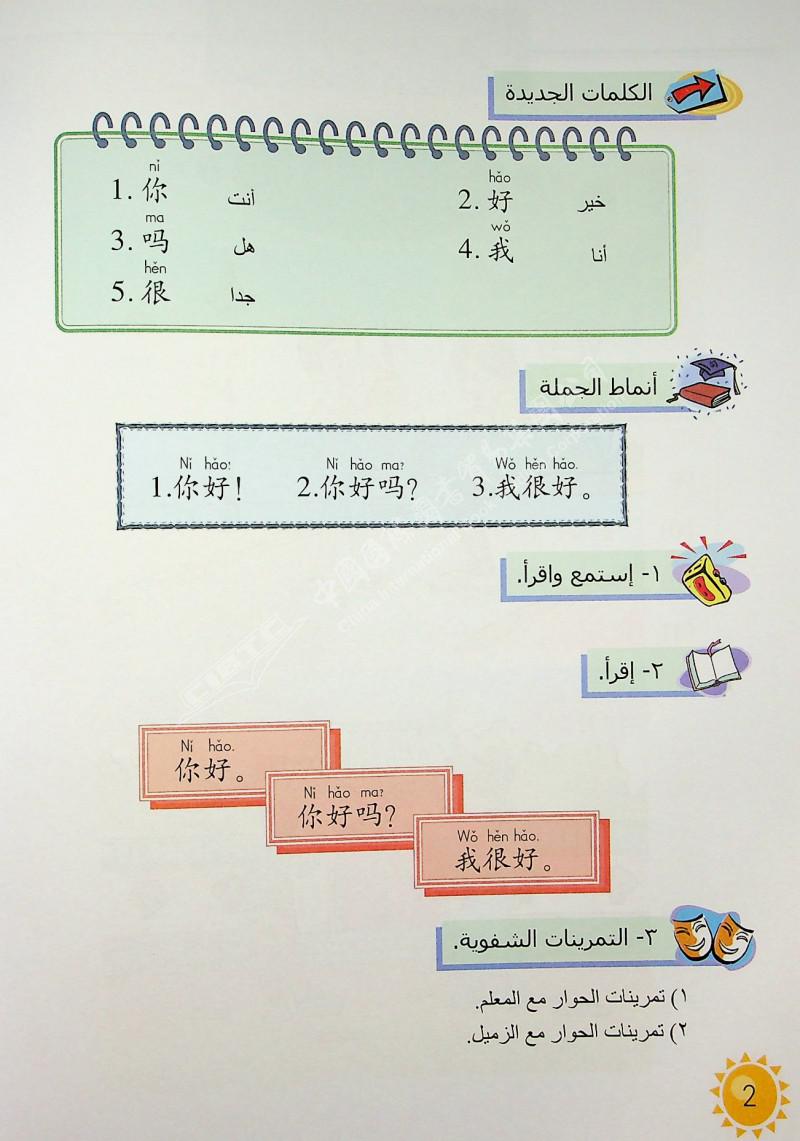 الكلمات الجديدة
nǐ hǎo
1. 你 أنت 2. 好 خير
ma wǒ
3. 吗 هل 4. 我 أنا
hěn
5. 很 جدا
أنماط الجملة
Nǐ hǎo! Nǐ hǎo ma? Wǒ hěn hǎo.
1.你好! 2.你好吗? 3.我很好。
١- إستمع واقرأ.
٢- إقرأ.
Nǐ hǎo.
你好。
Nǐ hǎo ma?
你好吗?
Wǒ hěn hǎo.
我很好。
٣- التمرينات الشفوية.
١) تمرينات الحوار مع المعلم.
٢) تمرينات الحوار مع الزميل.
2